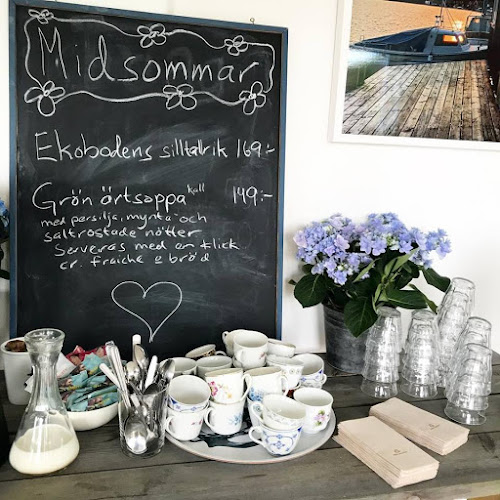 Midsommar
Ekobodens silltallrik 169:-
Grön ärtsoppa kall 149:-
med persilja, mynta och
saltrostade nötter
Serveras med en klick
cr. fraiche & bröd